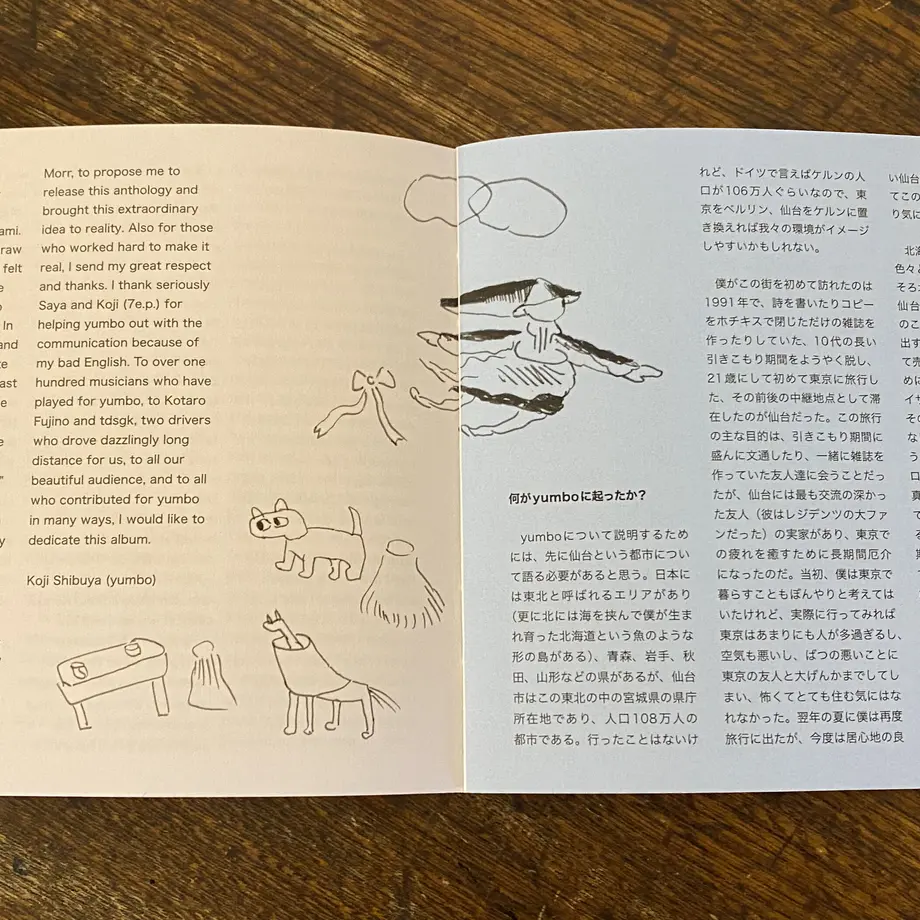 ami.
raw
felt
e
In
and
te
ast
e
e
"
y
Morr, to propose me to
release this anthology and
brought this extraordinary
idea to reality. Also for those
who worked hard to make it
real, I send my great respect
and thanks. I thank seriously
Saya and Koji (7e.p.) for
helping yumbo out with the
communication because of
my bad English. To over one
hundred musicians who have
played for yumbo, to Kotaro
Fujino and tdsgk, two drivers
who drove dazzlingly long
distance for us, to all our
beautiful audience, and to all
who contributed for yumbo
in many ways, I would like to
dedicate this album.
Koji Shibuya (yumbo)
何がyumboに起ったか?
yumboについて説明するため
には、先に仙台という都市につい
て語る必要があると思う。日本に
は東北と呼ばれるエリアがあり
(更に北には海を挟んで僕が生ま
れ育った北海道という魚のような
形の島がある)、青森、岩手、秋
田、山形などの県があるが、仙台
市はこの東北の中の宮城県の県庁
所在地であり、人口108万人の
都市である。行ったことはないけ
れど、ドイツで言えばケルンの人
口が106万人ぐらいなので、東
京をベルリン、仙台をケルンに置
き換えれば我々の環境がイメージ
しやすいかもしれない。
僕がこの街を初めて訪れたのは
1991年で、詩を書いたりコピー
をホチキスで閉じただけの雑誌を
作ったりしていた、10代の長い
引きこもり期間をようやく脱し、
21歳にして初めて東京に旅行し
た、その前後の中継地点として滞
在したのが仙台だった。この旅行
の主な目的は、引きこもり期間に
盛んに文通したり、一緒に雑誌を
作っていた友人達に会うことだっ
たが、仙台には最も交流の深かっ
た友人(彼はレジデンツの大ファ
ンだった)の実家があり、東京で
の疲れを癒すために長期間厄介
になったのだ。当初、僕は東京で
暮らすこともぼんやりと考えては
いたけれど、実際に行ってみれば
東京はあまりにも人が多過ぎるし、
空気も悪いし、ばつの悪いことに
東京の友人と大げんかまでしてし
まい、怖くてとても住む気にはな
れなかった。翌年の夏に僕は再度
旅行に出たが、今度は居心地の良
い仙台
てこの
り気に
北海
色々と
そろ
仙台
のこ
出す
て売
めに
イザ
その
な
う
ロ
真
て
る
期